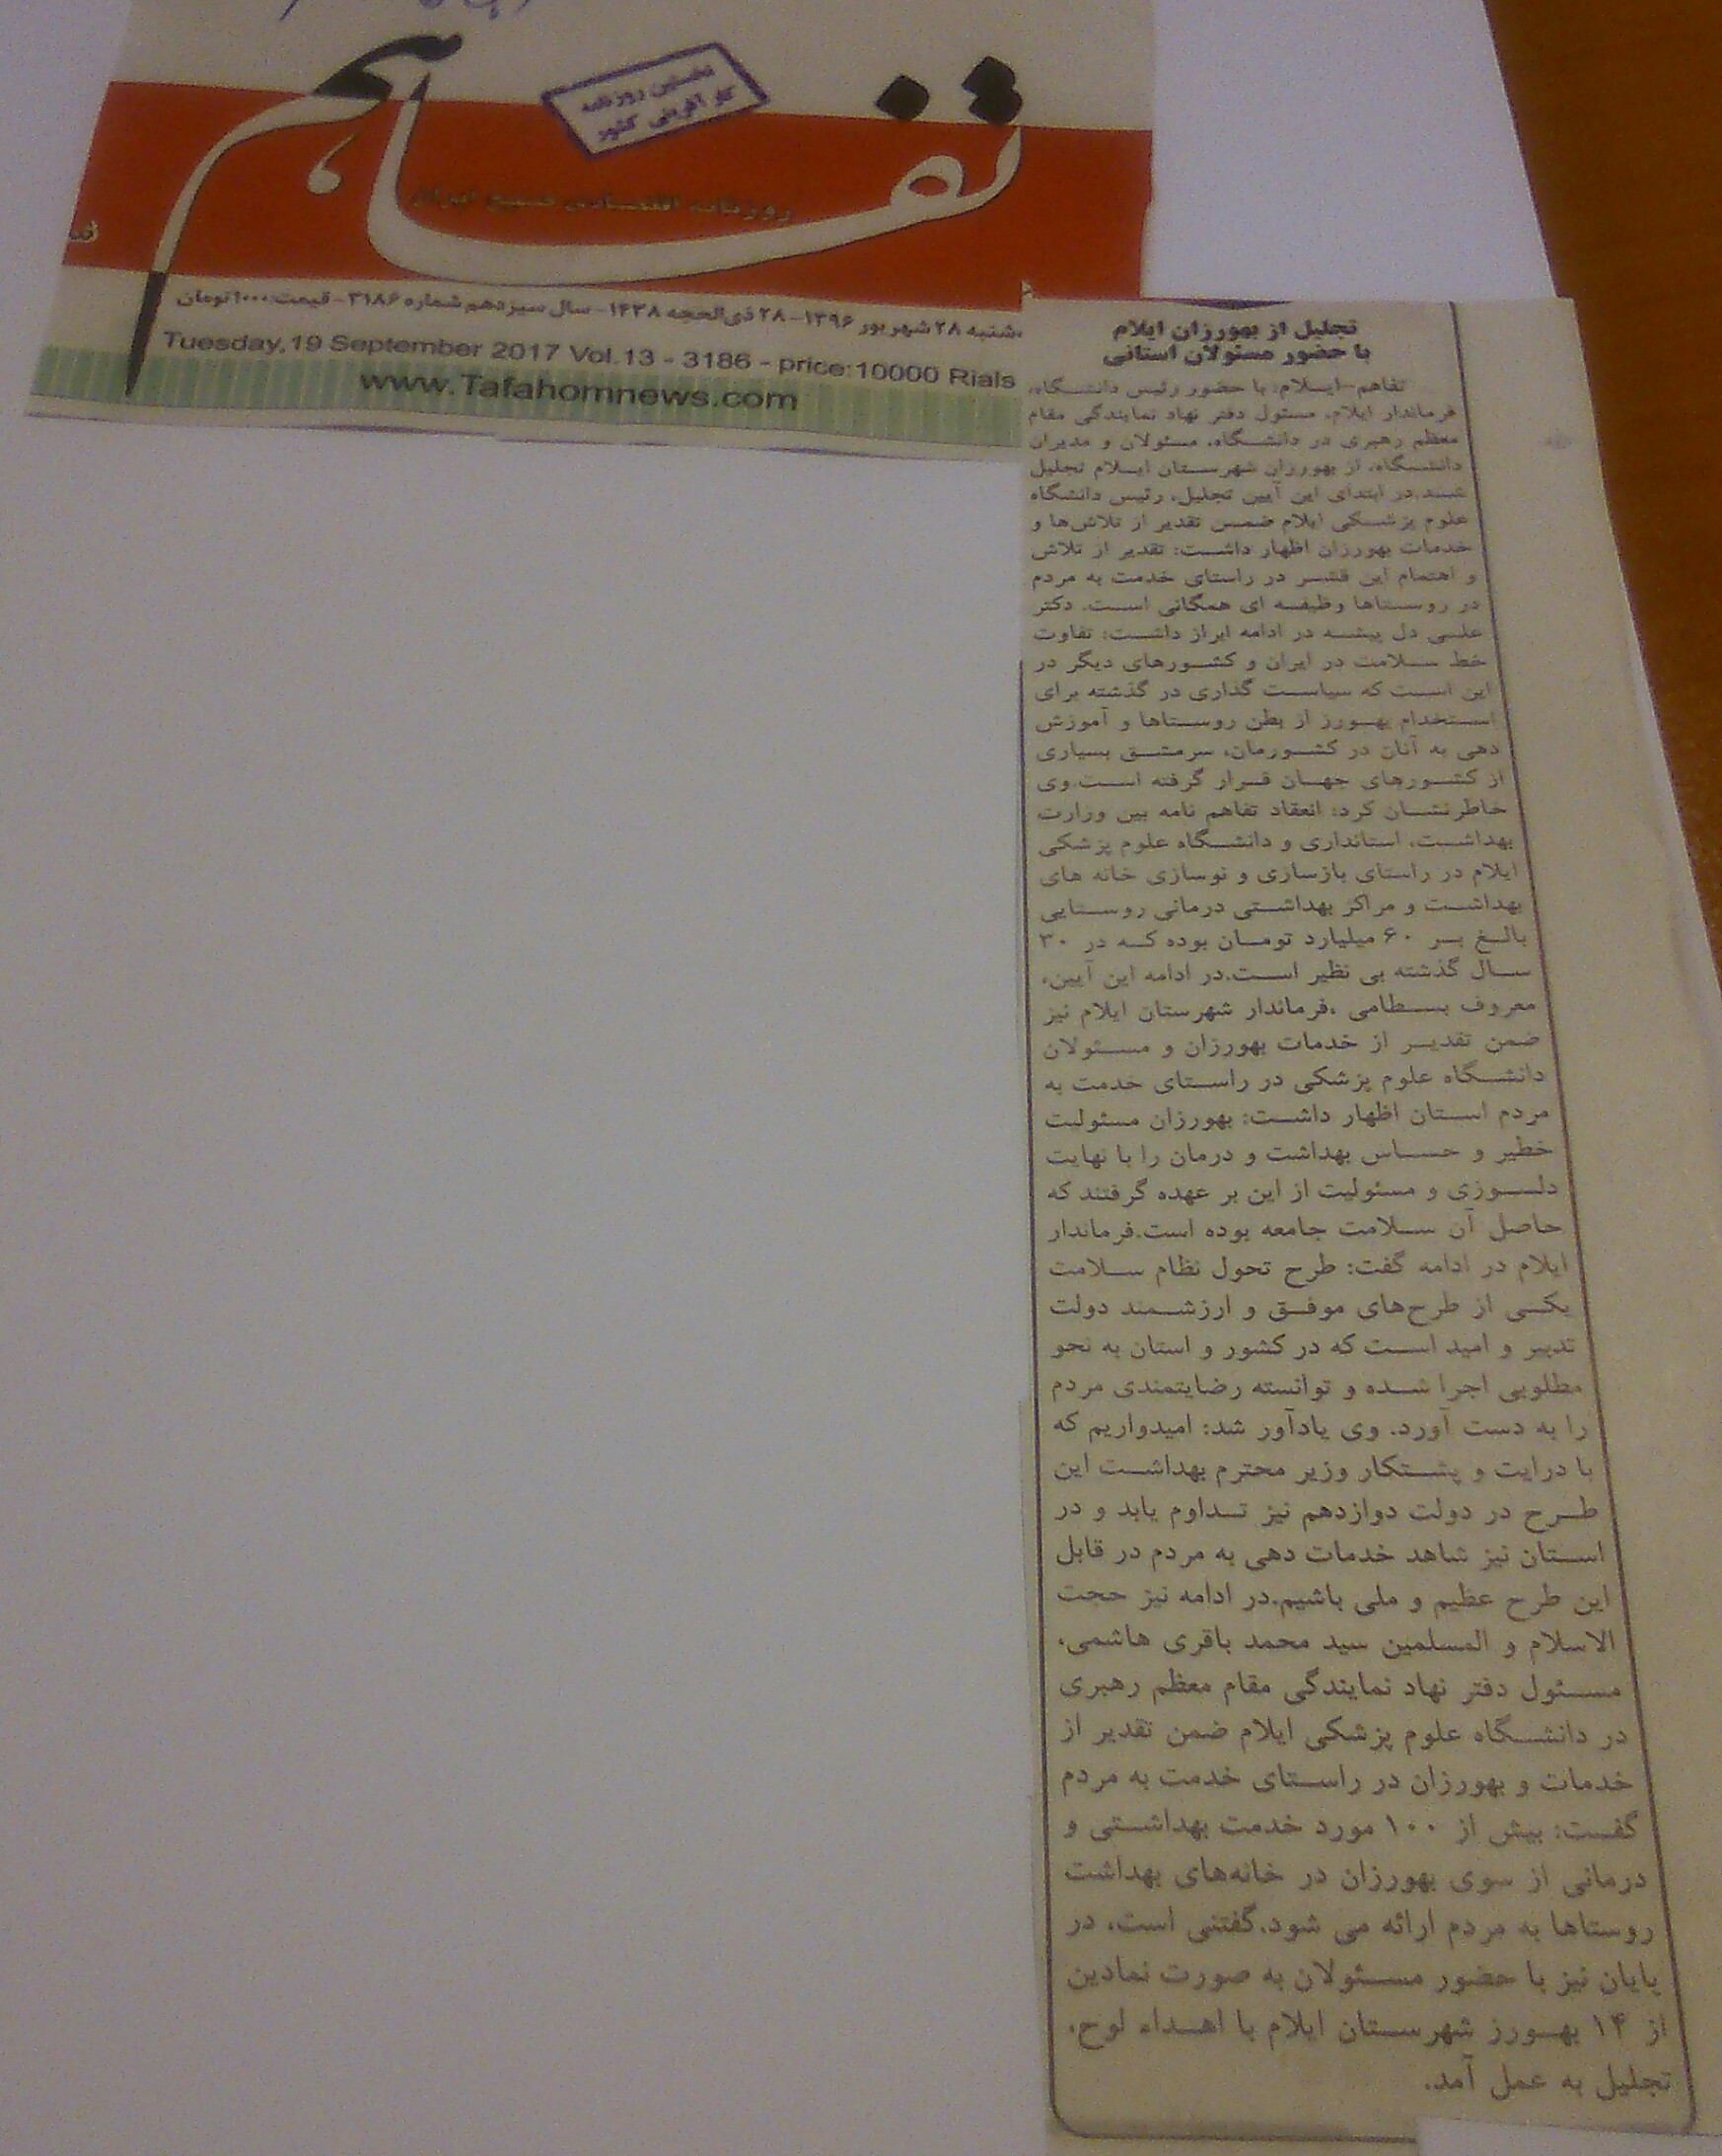 تفاهم
نخستین روزنامه
کارآفرینی کشور
روزنامه اقتصادی صبح ایران
‌شنبه ۲۸ شهریور ۱۳۹۶- ۲۸ ذی‌الحجه ۱۴۳۸- سال سیزدهم شماره ۳۱۸۶- قیمت:۱۰۰۰تومان
Tuesday,19 September 2017 Vol.13 - 3186 - price:10000 Rials
www.Tafahomnews.com
تجلیل از بهورزان ایلام
با حضور مسئولان استانی
تفاهم-ایلام: با حضور رئیس دانشگاه،
فرماندار ایلام، مسئول دفتر نهاد نمایندگی مقام
معظم رهبری در دانشگاه، مسئولان و مدیران
دانشگاه، از بهورزان شهرستان ایلام تجلیل
شد.در ابتدای این آیین تجلیل، رئیس دانشگاه
علوم پزشکی ایلام ضمن تقدیر از تلاش‌ها و
خدمات بهورزان اظهار داشت: تقدیر از تلاش
و اهتمام این قشر در راستای خدمت به مردم
در روستاها وظیفه ای همگانی است. دکتر
علی دل پیشه در ادامه ابراز داشت: تفاوت
خط سلامت در ایران و کشورهای دیگر در
این است که سیاست گذاری در گذشته برای
استخدام بهورز از بطن روستاها و آموزش
دهی به آنان در کشورمان، سرمشق بسیاری
از کشورهای جهان قرار گرفته است.وی
خاطرنشان کرد: انعقاد تفاهم نامه بین وزارت
بهداشت، استانداری و دانشگاه علوم پزشکی
ایلام در راستای بازسازی و نوسازی خانه های
بهداشت و مراکز بهداشتی درمانی روستایی
بالغ بر ۶۰ میلیارد تومان بوده که در ۳۰
سال گذشته بی نظیر است.در ادامه این آیین،
معروف بسطامی ،فرماندار شهرستان ایلام نیز
ضمن تقدیر از خدمات بهورزان و مسئولان
دانشگاه علوم پزشکی در راستای خدمت به
مردم استان اظهار داشت: بهورزان مسئولیت
خطیر و حساس بهداشت و درمان را با نهایت
دلسوزی و مسئولیت از این بر عهده گرفتند که
حاصل آن سلامت جامعه بوده است.فرماندار
ایلام در ادامه گفت: طرح تحول نظام سلامت
یکی از طرح‌های موفق و ارزشمند دولت
تدبیر و امید است که در کشور و استان به نحو
مطلوبی اجرا شده و توانسته رضایتمندی مردم
را به دست آورد. وی یادآور شد: امیدواریم که
با درایت و پشتکار وزیر محترم بهداشت این
طرح در دولت دوازدهم نیز تداوم یابد و در
استان نیز شاهد خدمات دهی به مردم در قابل
این طرح عظیم و ملی باشیم.در ادامه نیز حجت
الاسلام و المسلمین سید محمد باقری هاشمی،
مسئول دفتر نهاد نمایندگی مقام معظم رهبری
در دانشگاه علوم پزشکی ایلام ضمن تقدیر از
خدمات و بهورزان در راستای خدمت به مردم
گفت: بیش از ۱۰۰ مورد خدمت بهداشتی و
درمانی از سوی بهورزان در خانه‌های بهداشت
روستاها به مردم ارائه می شود.گفتنی است، در
پایان نیز با حضور مسئولان به صورت نمادین
از ۱۴ بهورز شهرستان ایلام با اهداء لوح،
تجلیل به عمل آمد.